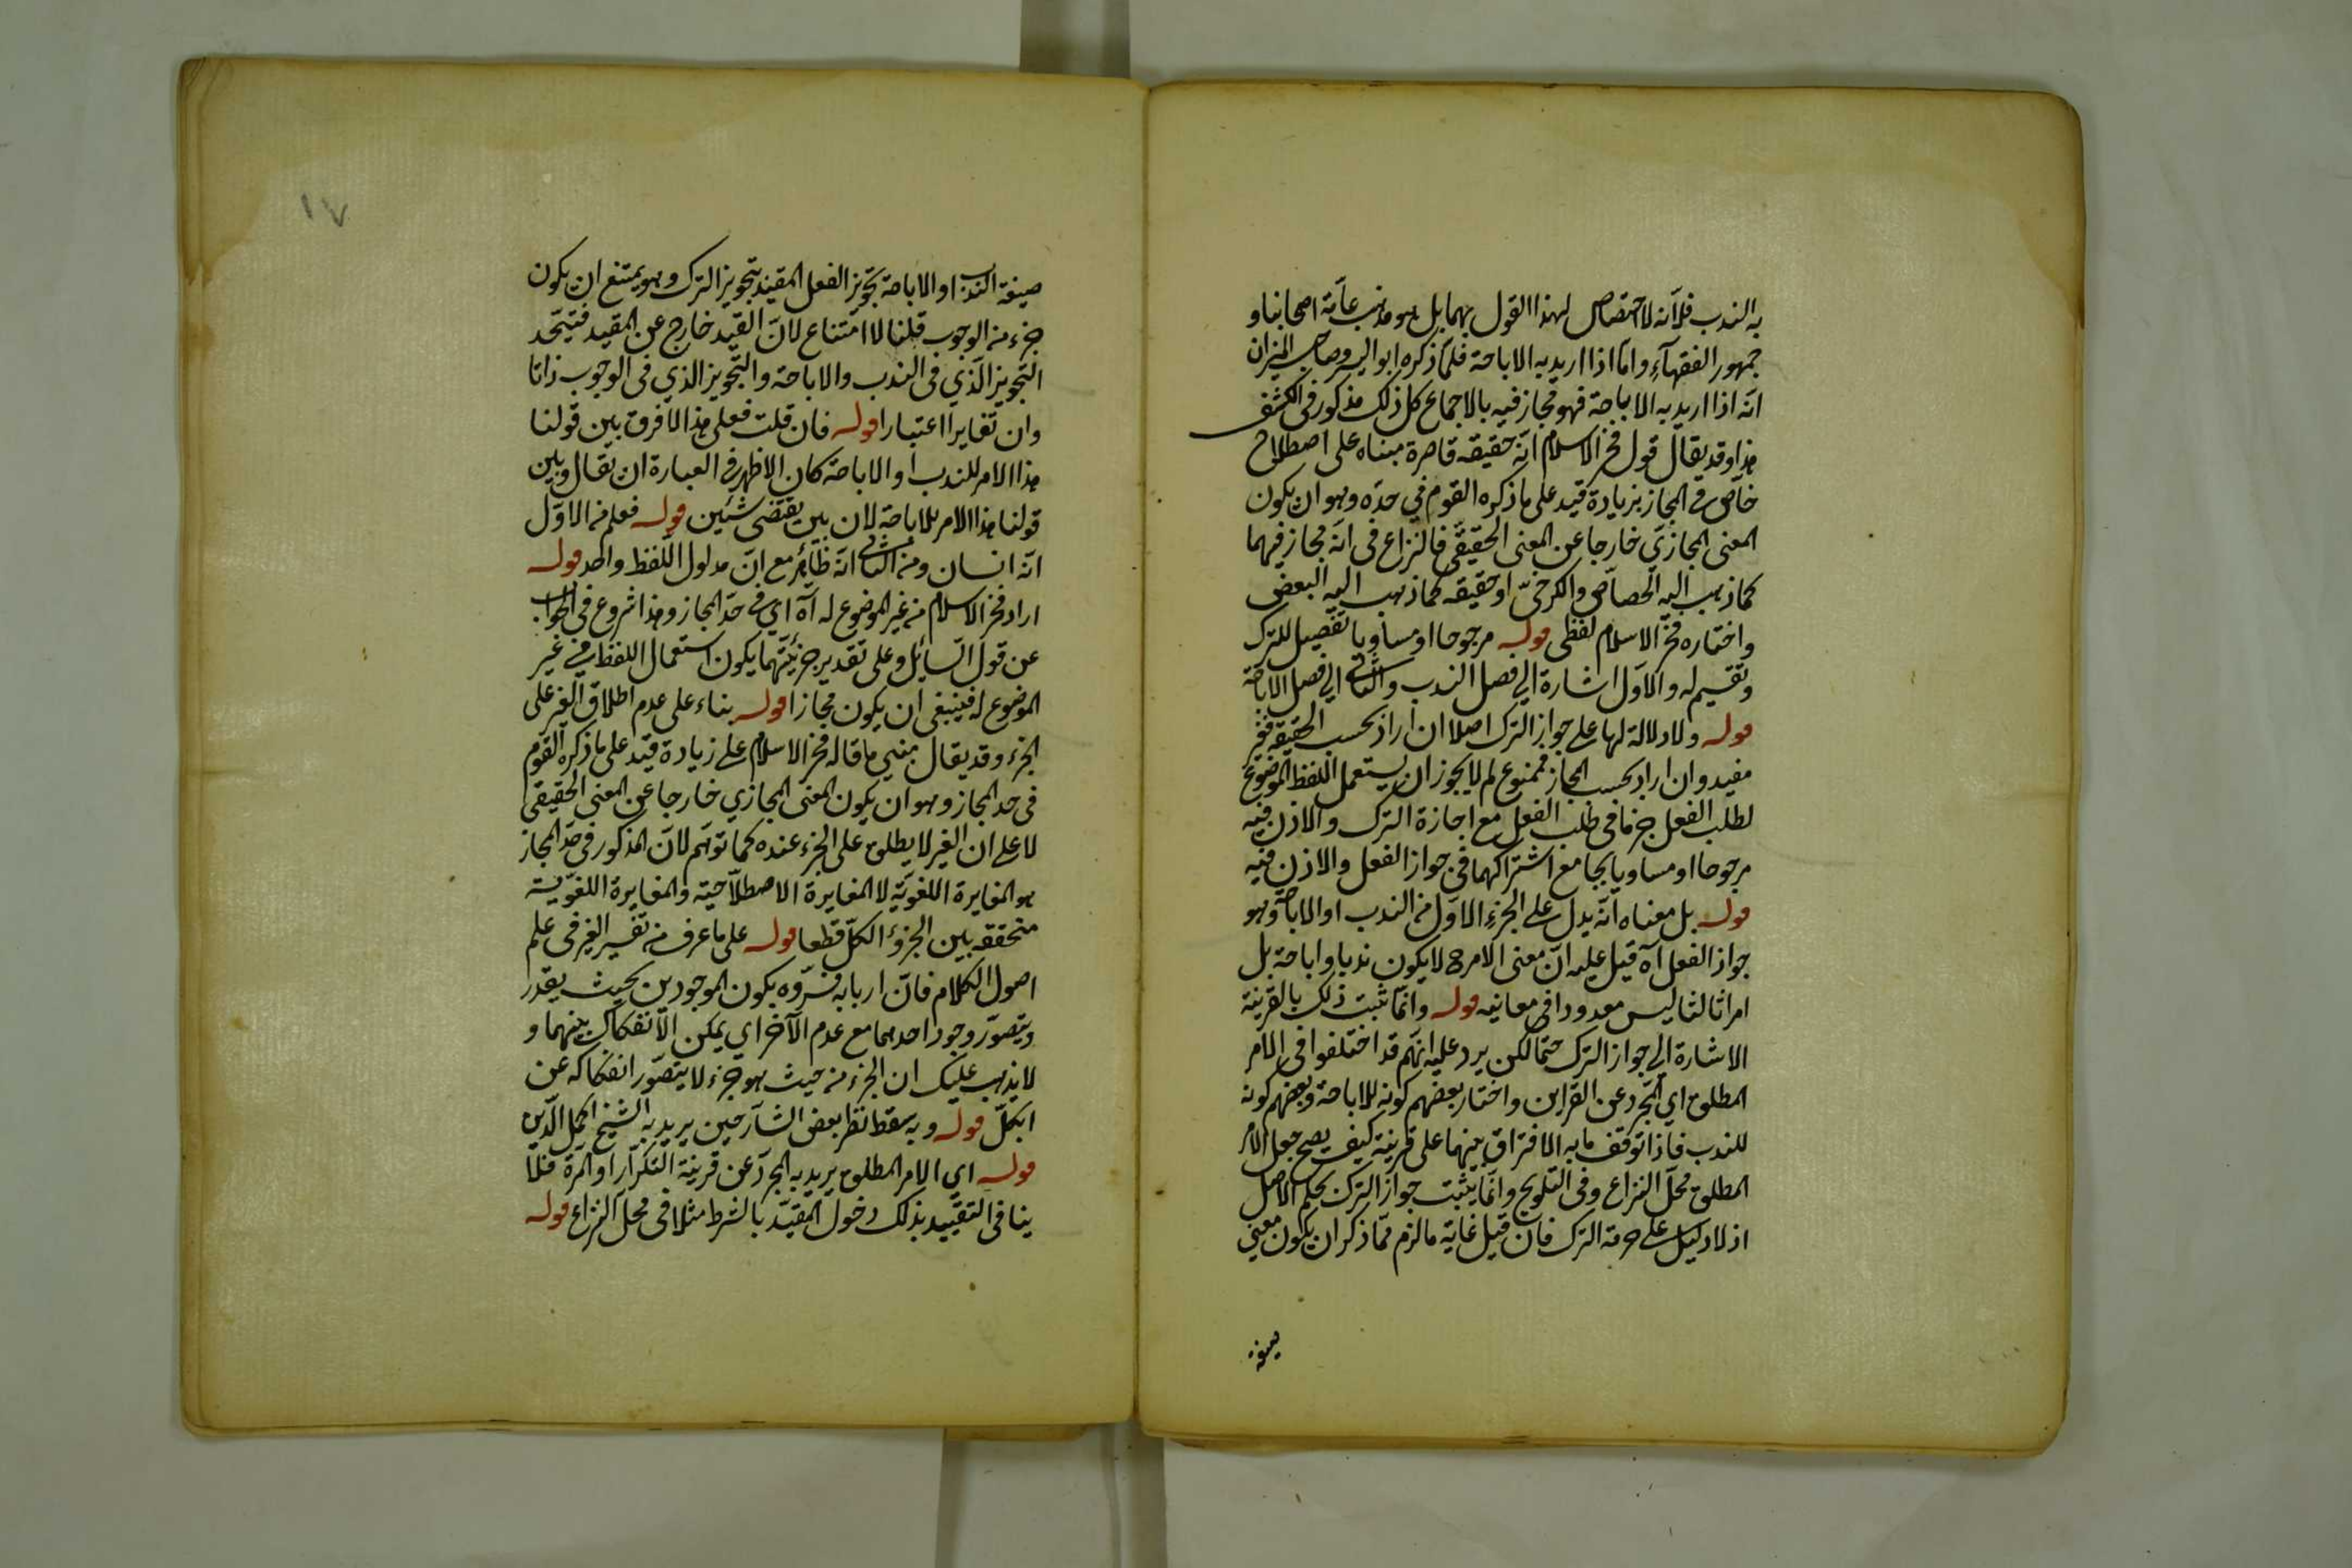 به الندب فلأنه لا اختصاص لهذا القول بهما بل هو مذهب عامّة اصحابنا و
جمهور الفقهآء وامّا اذا اريد به الاباحة فلما ذكره ابو اليسر وصاحب الميزان
انّه اذا اريد به الاباحة فهو مجاز فيه بالاجماع كل ذلك مذكور فى الكشف
هذا وقد يقال قول فخر الاسلام انّه حقيقه قاصرة مبناه على اصطلاح
خاصّ في المجاز بزيادة قيد على ما ذكره القوم في حدّه وهو ان يكون
المعنى المجازيّ خارجا عن المعنى الحقيقيّ فالنزاع فى انّه مجاز فيهما
كما ذهب اليه الجصاص والكرخىّ او حقيقه كما ذهب اليه البعض
واختاره فخر الاسلام لفظى قوله مرجوحا او مساويا تفصيل للترك
وتقسيم له والاول اشارة الي فصل الندب والثانى الي فصل الاباحة
قوله ولا دلالة لها على جواز الترك اصلا ان اراد بحسب الحقيقه فغير
مفيد وان اراد بحسب المجاز فممنوع لم لا يجوز ان يستعمل اللفظ الموضوع
لطلب الفعل جزما فى طلب الفعل مع اجازة الترك والاذن فيه
مرجوحا او مساويا بجامع اشتراكهما فى جواز الفعل والاذن فيه
قوله بل معناه انّه يدل على الجزء الاول من الندب او الاباحة وهو
جواز الفعل آه قيل عليه انّ معنى الامر ح لا يكون ندبا واباحة بل
امرا ثالثا ليس معدودا فى معانيه قوله وانّما ثبت ذلك بالقرينة
الاشارة الي جواز الترك حتما لكن يرد عليه انّهم قد اختلفوا فى الامر
المطلق اي المجرد عن القراين واختار بعضهم كونه للاباحة وبعضهم كونه
للندب فاذا توقف ما به الافتراق بينهما على قرينة كيف يصح جعل الامر
المطلق محلّ النزاع وفى التلويح وانّما يثبت جواز الترك بحكم الاصل
اذ لا دليل على حرمة الترك فان قيل غاية ما لزم ممّا ذكر ان يكون معنى
صيغة
صيغة الندب او الاباحة تجويز الفعل المقيد بتجويز الترك وهو يمتنع ان يكون
جزء من الوجوب قلنا لا امتناع لانّ القيد خارج عن المقيد فيتّحد
التجويز الّذي فى الندب والاباحة والتّجويز الذي فى الوجوب ذاتا
وان تغايرا اعتبارا قوله فان قلت فعلى هذا لا فرق بين قولنا
هذا الامر للندب او الاباحة كان الاظهر فى العبارة ان يقال وبين
قولنا هذا الامر للاباحة لان بين يقتضى شئين قوله فعلم من الاول
انّه انسان ومن الثانى انّه طاير مع انّ مدلول اللفظ واحد قوله
اراد فخر الاسلام من غير الموضوع له آه اي في حدّ المجاز وهذا شروع فى الجواب
عن قول السّايل وعلى تقدير جزئيّتهما يكون استعمال اللفظ في غير
الموضوع له فينبغى ان يكون مجازا قوله بناء على عدم اطلاق الغير على
الجزء وقد يقال مبنى ما قاله فخر الاسلام على زيادة قيد على ما ذكره القوم
فى حد المجاز وهو ان يكون المعنى المجازي خارجا عن المعنى الحقيقى
لا على ان الغير لا يطلق على الجزء عنده كما توهم لانّ المذكور فى حدّ المجاز
هو المغايرة اللغويّة لا المغايرة الاصطلاحية والمغايرة اللغويّة
متحققه بين الجزؤ الكلّ قطعا قوله على ما عرف من تفسير الغير فى علم
اصول الكلام فانّ اربابه فسّروه بكون الموجودين بحيث يقدّر
ويتصوّر وجود احدهما مع عدم الآخر اي يمكن الانفكاك بينهما و
لا يذهب عليك ان الجزء من حيث هو جزء لا يتصوّر انفكاكه عن
الكلّ قوله وبه سقط نظر بعض الشارحين يريد به الشيخ اكمل الدّين
قوله اى الامر المطلق يريد به المجرد عن قرينة التكرار او المرة فلا
ينافى التقييد بذلك دخول المقيّد بالشرط مثلا فى محل النزاع قوله
١٧